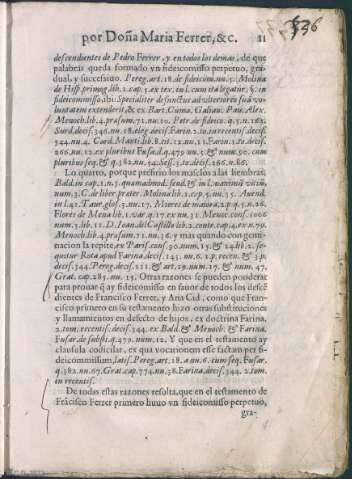 336
por Doña Maria Ferrer, &c. 21
descendientes de Pedro Ferrer, y en todos los demas, de que
palabras queda formado vn fideicomisso perpetuo, gra-
dual, y successiuo. Pereg. art. 18. de fideicom. nu. 5. Molina
de Hisp. primog. lib. 2. cap. 5. ex tex. in l. cum ita legatur. §. in
fideicommisso, ibi: Specialiter defunctus ad vlteriores suã vo-
luntatem extenderit, &c. Bart. Cuma. Galian. Pau. Alex.
Menoch. lib. 4. præsum. 71. nu. 10. Petr. de fideico. q. 5. n. 163.
Surd. decis. 346. nu. 18. eleg. decis. Farin. 2. to. in recentis. decis.
344. nu. 4. Card. Manti. lib. 8. tit. 12. nu. 31. Fusar. q. 321. nu.
266. nu. 12. ex pluribus Fusa. d. q. 479. nu. 5. & num. 50. cum
pluribus seq. & q. 382. nu. 34. Sess. 3. to. decis. 266. n. 86.
Lo quarto, porque prefirio los masclos a las hembras,
Bald. in cap. 1. n. 3. quemadmod. feud. & in l. maximũ vitiũ,
num. 3. C. de liber. præter. Molina lib. 1. cap. 5. nu. 35. Auend.
in l. 41. Taur. glos. 3. nu. 17. Mieres de maiora. 2. p. q. 5. n. 26.
Flores de Mena lib. 1. var. q. 17. ex nu. 31. Menoc. cons. 1006
num. 3. lib. 11. D. Ioan. del Castillo lib. 2. contr. cap. 4. ex n. 79.
Menoch. lib. 4. præsum. 71. nu. 36. y mas quando con gemi-
nacion la repite, ex Paris. cons. 50. num. 15. & 24. lib. 2. se-
quitur Rota apud Farina. decis. 143. nu. 6. 1. p. recen. & 3. p.
decis. 344. Pereg. decis. 111. & art. 19. num. 17. & num. 47.
Grat. cap. 285. nu. 15. Otras razones se pueden ponderar
para prouar q̃ ay fideicomisso en fauor de todos los descẽ
dientes de Francisco Ferrer, y Ana Cid, como que Fran-
cisco primero en su testamento hizo otras substituciones
y llamamientos en defecto de hijos, ex doctrina Farina.
2. tom. recentis. decis. 344. ex Bald. & Menoch. & Farina.
Fusar. de subst. q. 479. num. 12. Y que en el testamento ay
clausula codicilar, ex qua vocationem esse factam per fi-
deicommissum, latis. Pereg. art. 18. a nu. 6. cum seq. Fusar.
q. 382. nu. 67. Grat. cap. 774. nu. 38. Farina. decis. 344. 2. tom.
in recentis.
De todas estas razones resulta, que en el testamento de
Frãcisco Ferrer primero huuo vn fideicomisso perpetuo,
gra-